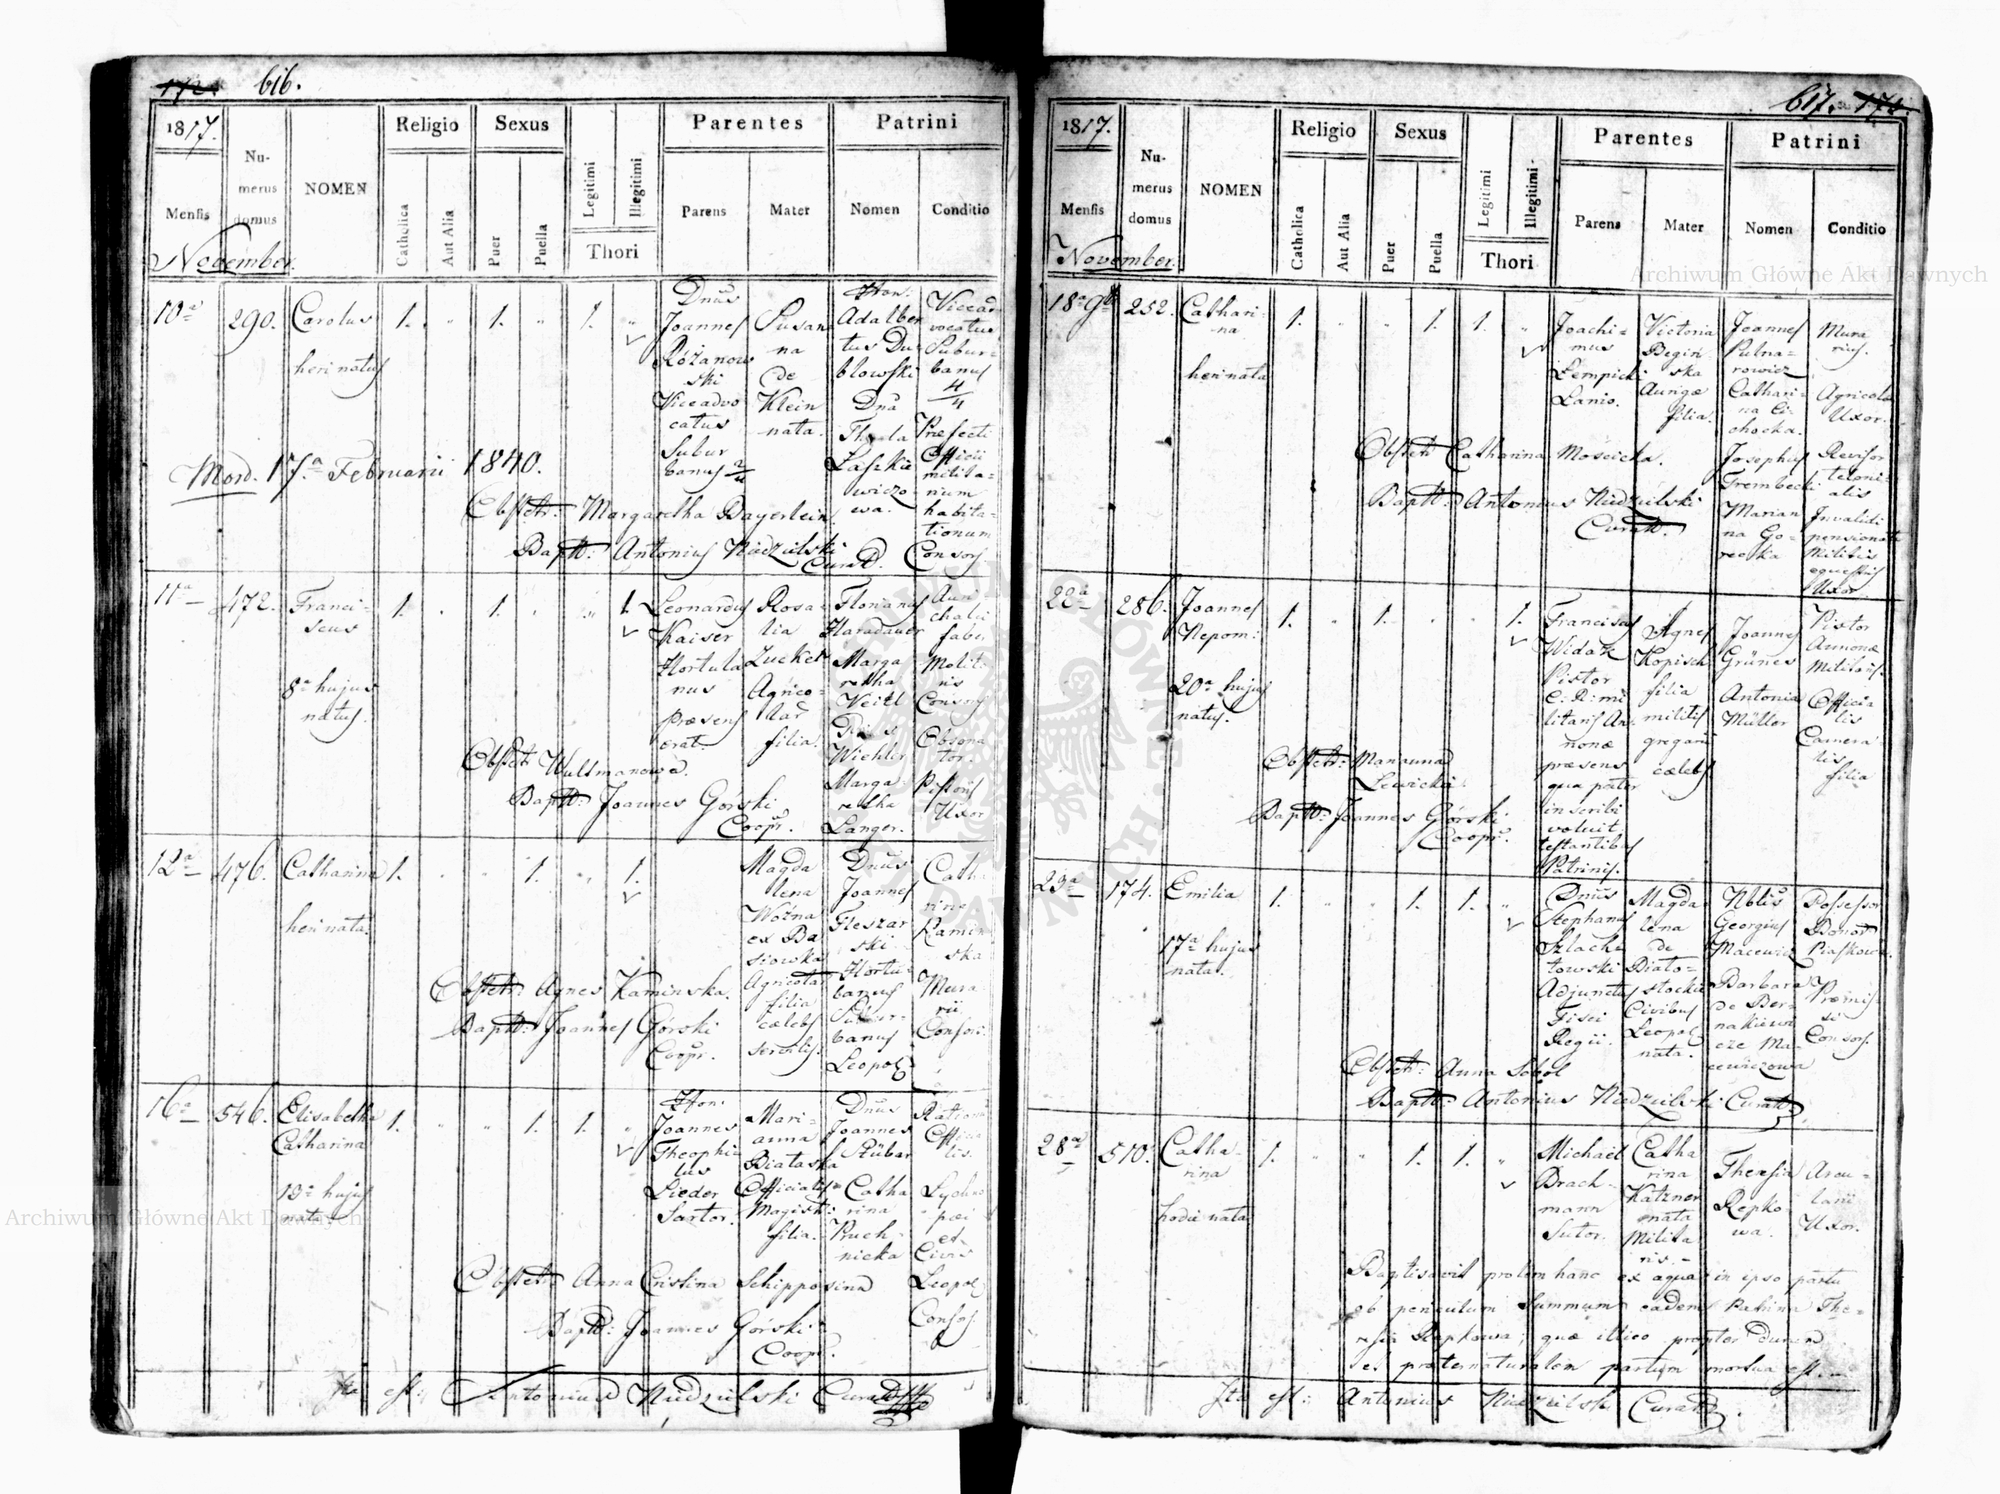 616.
1817.
Nu-
merus
domus
NOMEN
Religio
Sexus
Legitimi
Illegitimi
Thori
Parentes
Patrini
Mensis
Catholica
Aut Alia
Puer
Puella
Parens
Mater
Nomen
Conditio
November.
10ª
290.
Carolus
heri natus
1.
1.
1.
Dnus
Joannes
Różanow
ski
Viceadvo
catus
Subur
banus
Susan
na
de
Klein
nata.
Hon.
Adalber
tus Du
blowski
Dna
Laszkie
wiczo
wa.
Viccad
vocatus
Subur
banus
4/4
Præfecti
Officii
milita-
rium
habita-
tionum
Consors
Mord. 17ª Februarii 1840.
Obstetr: Margaretha Bayerlein
Bapt: Antonius Niedzielski
Curat.
11ª
472.
Franci-
scus
8ª hujus
natus.
1.
1.
1.
Leonardus
Kaiser
Hortula
nus
præsens
erat.
Rosa-
lia
Zucker
Agrico-
lar
filia.
Florianus
Haradauer
Marga
retha
Veitl
Wichler
Marga
retha
Langer.
faber
Molit-
ris
Consors
Obsona
tor.
Pistoris
Uxor
Obstetr Wultmanowa.
Bapt: Joannes Górski
Coopr.
12ª
476.
Catharina
heri nata.
1.
1.
1.
Magda
lena
Woźna
ex Ba
siowka
Agricolæ
filia
cælebs
servilis.
Dnus
Joannes
Fleszar
ski
Hortu-
banus
Subur-
banus
Leopol:
Catha
rina
Kamin
ska
Mura
rii
Consors.
Obstetr: Agnes Kaminska.
Bapt: Joannes Górski
Coopr.
16ª
546.
Elisabetha
Catharina
13ª hujus
nata
1.
1.
1.
Hon.
Joannes
Theophi
lus
Lieder
Sartor.
Mari-
anna
Białaska
Officialis
Magistr:
filia.
Dnus
Joannes
Stübar
Catha
rina
Pruch-
nicka
Officia
lis.
et
Civis
Leopol:
Consors.
Obstetr Anna Cristina Schipposina
Bapt: Joannes Górski
Coopr.
Ita est: Antonius Niedzielski Curat
617.
1817.
Nu-
merus
domus
NOMEN
Religio
Sexus
Legitimi
Illegitimi.
Thori
Parentes
Patrini
Mensis
Catholica
Aut Alia
Puer
Puella
Parens
Mater
Nomen
Conditio
November.
18ª 9b
252.
Cathari-
na
heri nata
1.
1.
1.
Joachi-
mus
Lempicki
Lanio.
Victoria
Begiń
ska
filia.
Joannes
Pulna-
rowicz
Cathari-
na Ci-
chocka.
Josephus
Trembecki
Marian
na Go-
recka
Mura
rius.
Agricola
Uxor.
Revisor
teloni-
alis
Invalidi
pensionati
Militis
equestris
Uxor
Obstetr Catharina Mościcka.
Bapt: Antonius Niedzielski
Curat.
22ª
286.
Joannes
Nepom:
20ª hujus
natus.
1.
1.
1.
Franciscus
Widak
Pistor
C: R: mi
litaris An
nonæ
præsens
qua pater
inscribi
voluit
testantibus
Patrinis.
Agnes
Kopisch
filia
militis
gregarii
cælebs
Joannes
Grünes
Antonia
Müller
Pistor
Annonæ
Militaris.
Officia
lis
Camera
lis
filia
Obstetr: Marianna
Lewicka
Bapt: Joannes Górski
Coopr.
23ª
174.
Emilia
17ª hujus
nata.
1.
1.
1.
Dnus
Stephanus
Szlach
towski
Adjunctus
Fisci
Regii.
Magda
lena
de
Biało-
stockie
Civibus
Leopol
nata.
Nblis
Georgius
Macewicz
Barbara
de Ber-
nakiewi
cze Ma-
cewiczowa
Possessor
Bonor
Piaskowa.
Præmis
si
Consors.
Obstetr: Anna Sobol
Bapt: Antonius Niedzielski Curat.
28ª
510.
Catha-
rina
hodie nata
1.
1.
1.
Michael
Brach-
mann
Sutor.
Catha
rina
Katzner
nata
Milita
ris.-
Theresia
Repko
wa.
Arcu-
larii
Uxor.
Baptisavit prolem hanc ex aqua in ipso partu
ob periculum summum eadem Patrina The-
resia Repkowa; quæ illico propter durum
et præternaturalem partum mortua est.-
Ita est: Antonius Niedzielski Curat.
Archiwum Główne Akt Dawnych
Archiwum Główne Akt Dawnych